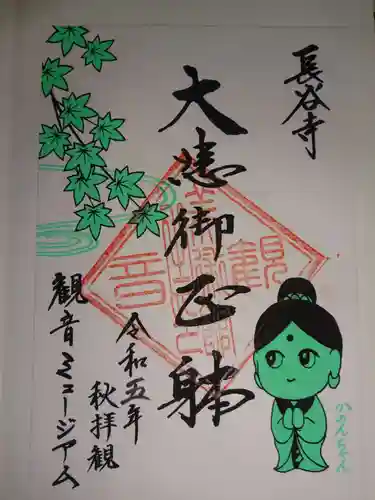 長谷寺
大悲御正躰
令和五年
秋拝観
観音ミュージアム
かのんちゃん
観音